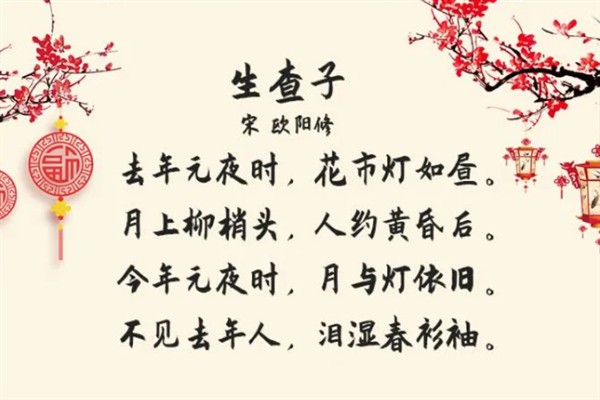 生查子
宋 欧阳修
去年元夜时，花市灯如昼。
月上柳梢头，人约黄昏后。
今年元夜时，月与灯依旧。
不见去年人，泪湿春衫袖。